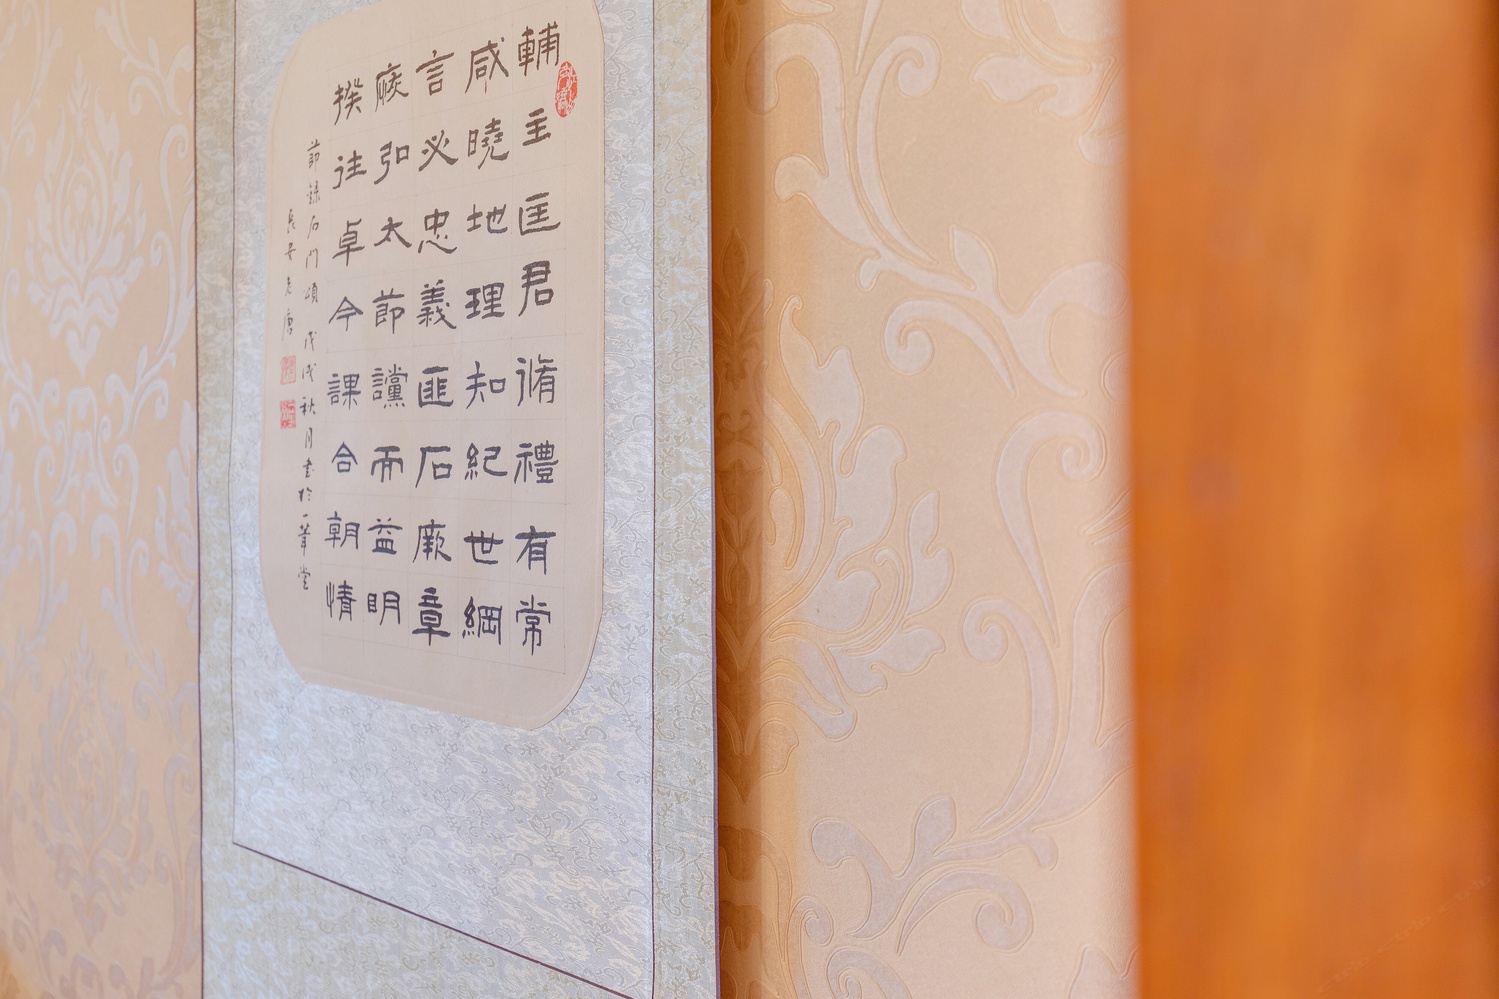 輔主匡君脩禮有常
咸曉地理知紀世綱
言必忠義匪石厥章
廒弘大節讜而益明
揆往卓今謀合朝情
節錄石門頌戊戌秋月書於一葦堂
長安老唐